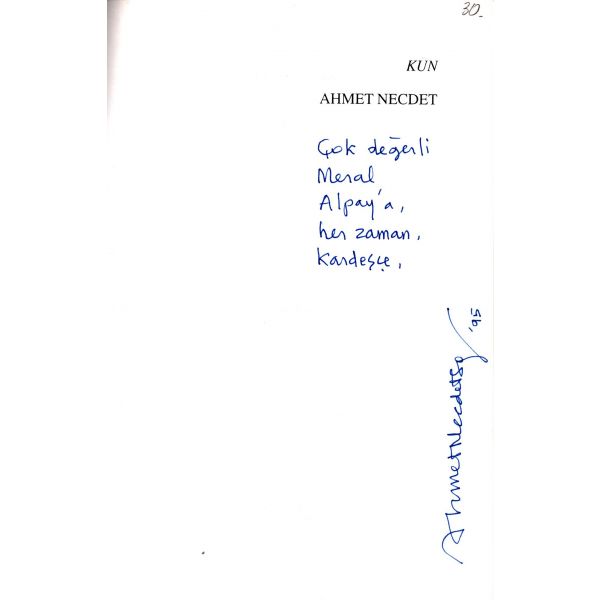 30.-
KUN
AHMET NECDET
Çok değerli
Meral
Alpay'a,
her zaman,
Kardeşçe,
Ahmet Necdet
'95